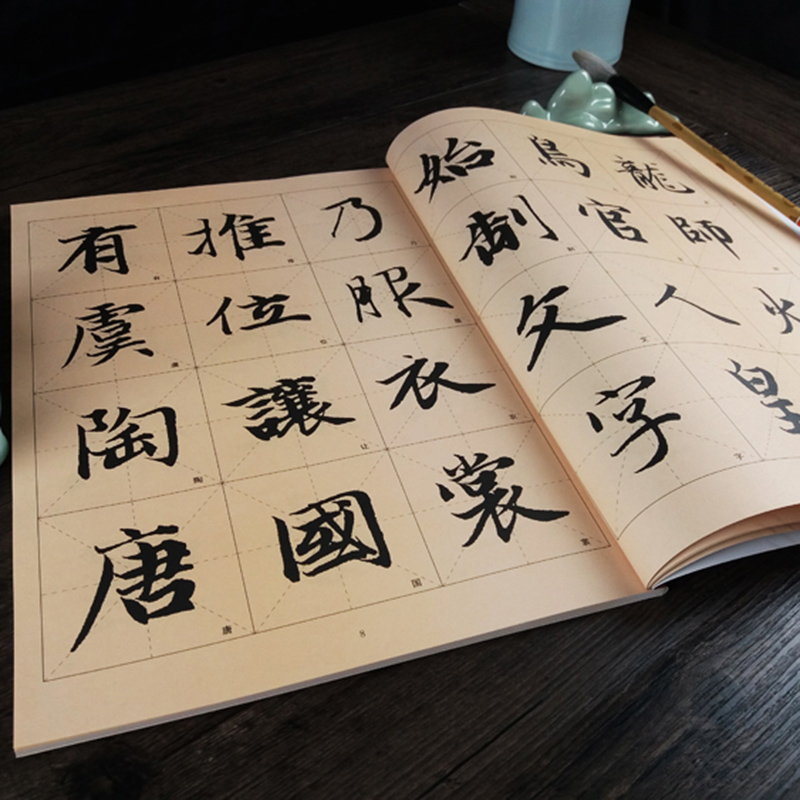 龍師火
鳥官人皇
始制文字
乃服衣裳
推位讓國
有虞陶唐
文
字
裳
让
国
陶
唐
8